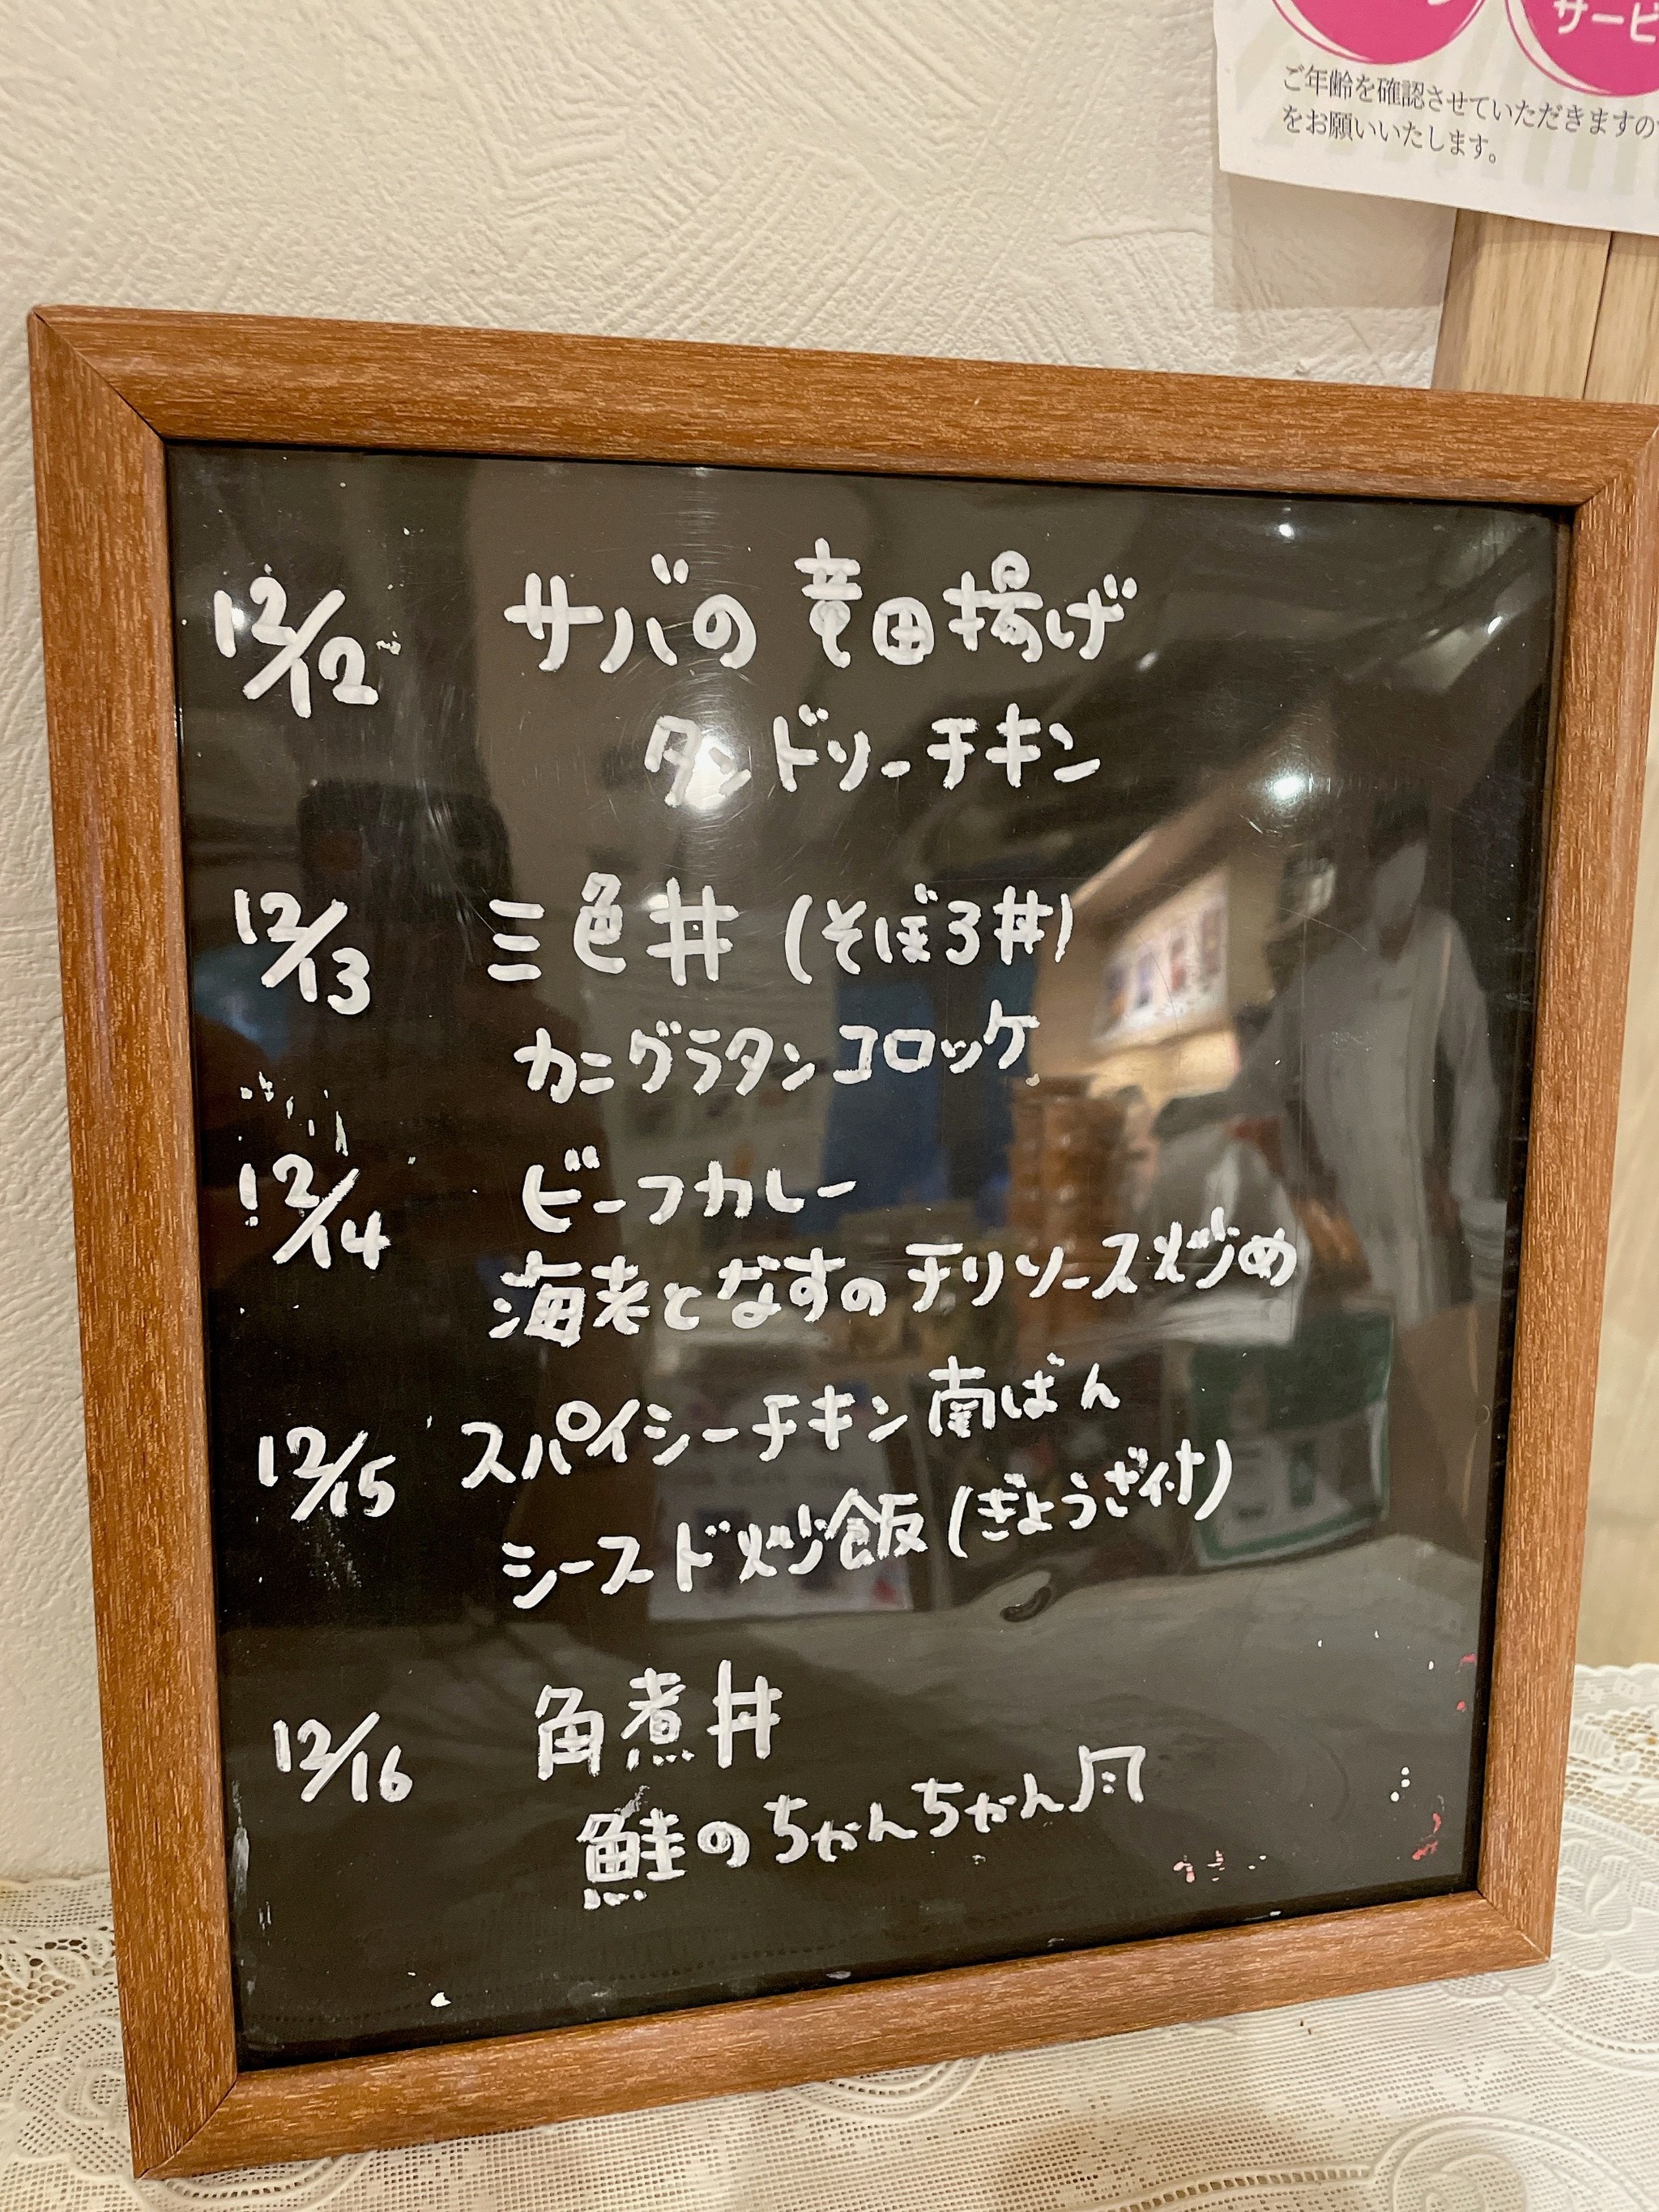 サービ
ご年齢を確認させていただきますので
をお願いいたします。
12/12 サバの竜田揚げ
タンドリーチキン
12/13 三色丼(そぼろ丼)
カニグラタンコロッケ
12/14 ビーフカレー
海老となすのチリソース炒め
12/15 スパイシーチキン南ばん
シースド炒飯(ぎょうざ付)
12/16 角煮丼
鮭のちゃんちゃん